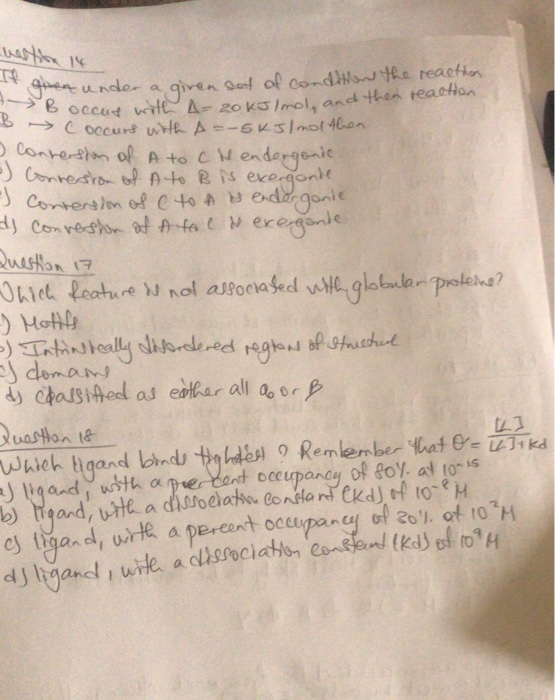 uestion 14
If given under a given set of conditions the reaction
A → B occurs with Δ = 20 kJ/mol, and then reaction
B → C occurs with Δ = -5 kJ/mol then
) Conversion of A to C is endergonic
) Conversion of A to B is exergonic
) Conversion of C to A is endergonic
d) Conversion of A to C is exergonic
Question 17
Which feature is not associated with globular proteins?
) Motifs
) Intrinsically disordered regions of structure
c) domains
d) classified as either all α or β
Question 18
Which ligand binds tightest? Remember that θ = [L] / [L] + Kd
a) ligand, with a percent occupancy of 80% at 10⁻¹⁵
b) ligand, with a dissociation constant (Kd) of 10⁻⁸ M
c) ligand, with a percent occupancy of 30% at 10² M
d) ligand, with a dissociation constant (Kd) of 10⁹ M